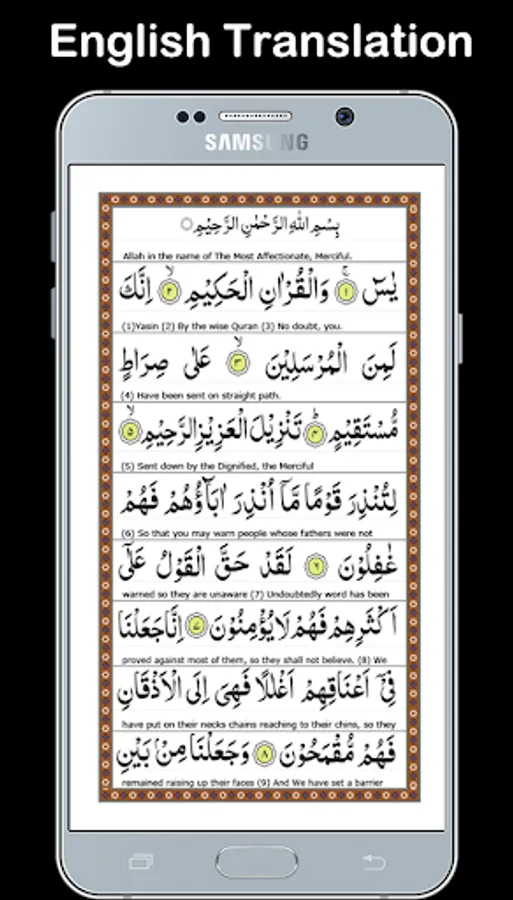 English Translation
SAMSUNG
بِسْمِ اللهِ الرَّحْمٰنِ الرَّحِيْمِ
Allah in the name of The Most Affectionate, Merciful.
يٰسٓ ۚ ﴿۱﴾ وَالْقُرْاٰنِ الْحَكِيْمِ ۙ ﴿۲﴾ اِنَّكَ
(1)Yasin (2) By the wise Quran (3) No doubt, you.
لَمِنَ الْمُرْسَلِيْنَ ۙ ﴿۳﴾ عَلٰى صِرَاطٍ
(4) Have been sent on straight path.
مُّسْتَقِيْمٍ ؕ ﴿۴﴾ تَنْزِيْلَ الْعَزِيْزِ الرَّحِيْمِ ۙ ﴿۵﴾
(5) Sent down by the Dignified, the Merciful
لِتُنْذِرَ قَوْمًا مَّاۤ اُنْذِرَ اٰبَآؤُهُمْ فَهُمْ
(6) So that you may warn people whose fathers were not
غٰفِلُوْنَ ﴿۶﴾ لَقَدْ حَقَّ الْقَوْلُ عَلٰٓى
warned so they are unaware (7) Undoubtedly word has been
اَكْثَرِهِمْ فَهُمْ لَا يُؤْمِنُوْنَ ﴿۷﴾ اِنَّا جَعَلْنَا
proved against most of them, so they shall not believe. (8) We
فِيْۤ اَعْنَاقِهِمْ اَغْلٰلًا فَهِىَ اِلَى الْاَذْقَانِ
have put on their necks chains reaching to their chins, so they
فَهُمْ مُّقْمَحُوْنَ ﴿۸﴾ وَجَعَلْنَا مِنْۢ بَيْنِ
remained raising up their faces (9) And We have set a barrier